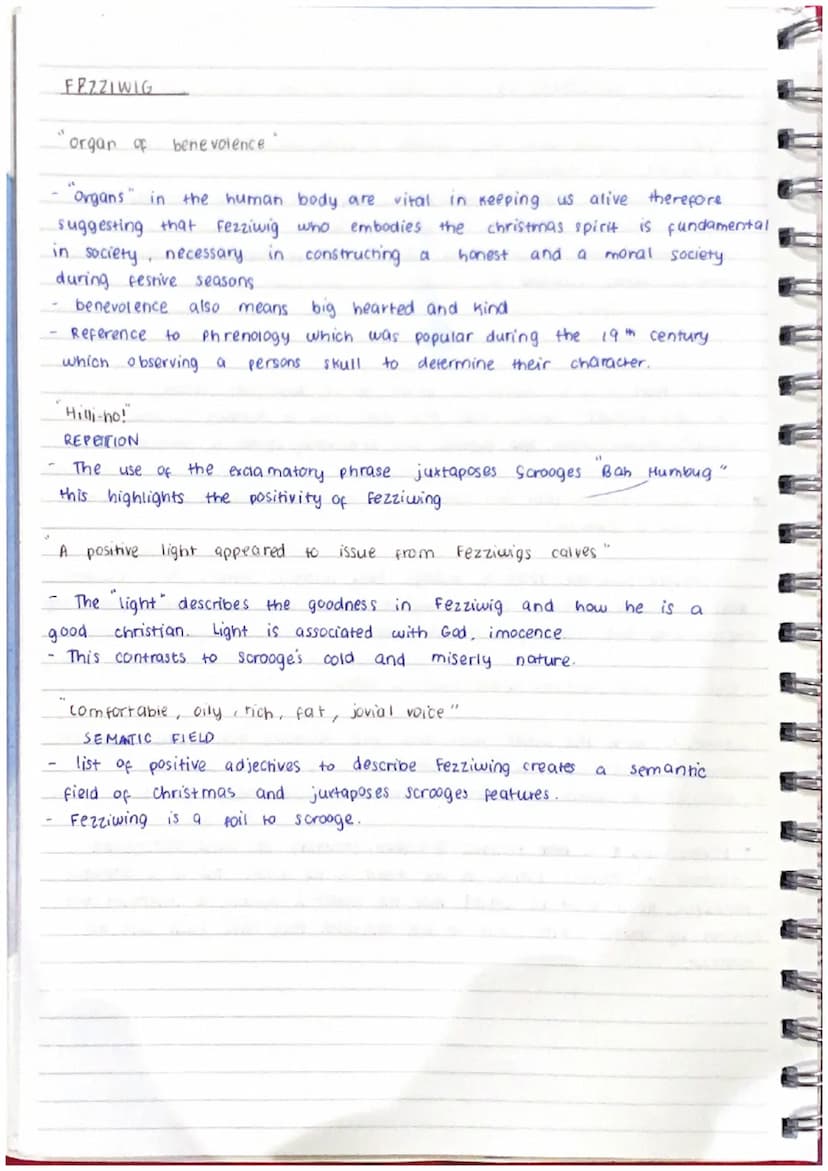 FEZZIWIG
"organ of benevolence"
- "Organs" in the human body are vital in keeping us alive therefore
suggesting that Fezziwig who embodies the christmas spirit is fundamental
in society, necessary in constructing a honest and a moral society
during festive seasons
- benevolence also means big hearted and kind
- Reference to phrenology which was popular during the 19th century
which observing a persons skull to determine their character.
"Hilli-ho!"
REPETION
- The use of the exclamatory phrase juxtaposes Scrooges "Bah Humbug"
this highlights the positivity of Fezziwing
"A positive light appeared to issue from Fezziwigs calves"
- The "light" describes the goodness in Fezziwig and how he is a
good christian. Light is associated with God, innocence.
- This contrasts to scrooge's cold and miserly nature.
"comfortable, oily, rich, fat, jovial voice"
SEMATIC FIELD
- list of positive adjectives to describe Fezziwing creates a semantic
field of Christmas and juxtaposes scrooges features.
- Fezziwing is a foil to scrooge.